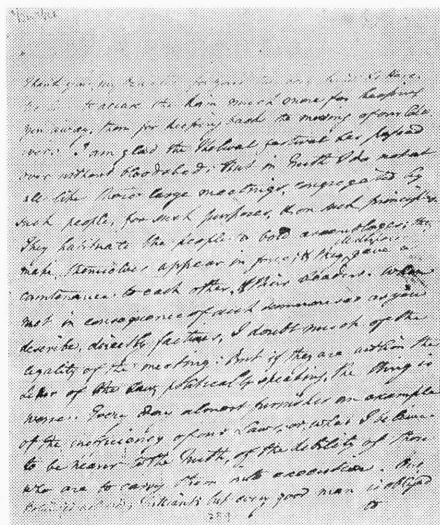 Thank you, my Dear
to accuse the Rain much more for keeping
you away, than for keeping back the
over. I am glad the festival has passed
over without bloodshed; But in Truth I do not at
all like those large meetings, congregated by
such people, for such purposes, & on such principles.
They habituate the people to bold assemblages; they
make themselves appear in force; & they give a
countenance to each other, & their Leaders. When
met in consequence of such summonses as you
describe, directly factious, I doubt much of the
legality of the meeting: But if they are within the
letter of the Law, politically speaking, the thing is
worse. Every Day almost furnishes an example
of the insufficiency of our Laws, or, what I believe
to be nearer to the Truth, of the debility of those
who are to carry them into execution.
but every good man is obliged
389
or